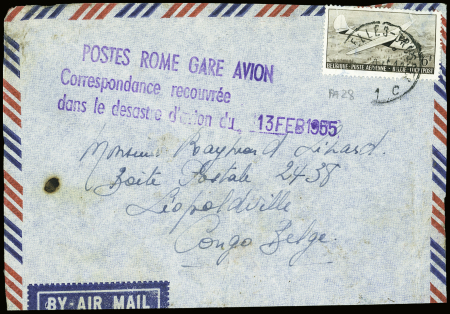 POSTES ROME GARE AVION
Correspondance recouvrée
dans le desastre d'avion du 13 FEB 1955
BELGIQUE·POSTE AERIENNE - BELGIE·LUCHTPOST
PA28
1 C
Monsieur Raymond Lihard.
Boite Postale 2438
Léopoldville
Congo Belge.
BY-AIR MAIL